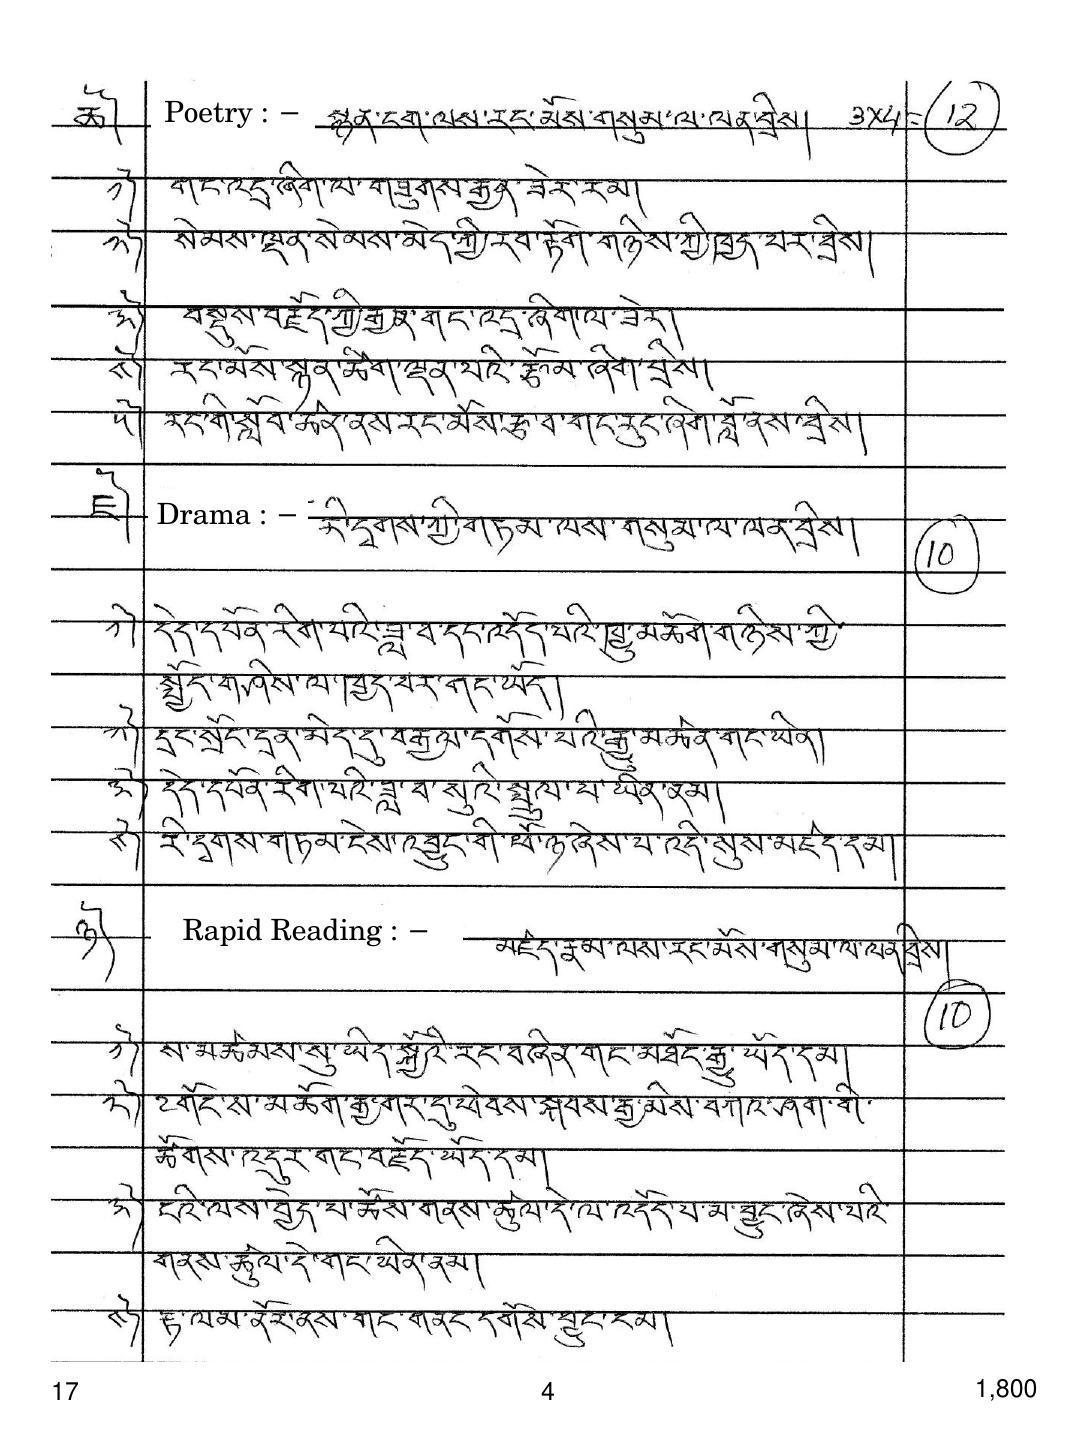 ཆ༽ Poetry : – སྙན་ངག་ལས་རང་མོས་གསུམ་ལ་ལན་བྲིས། 3x4= 12
༡༽ གང་འདྲ་ཞིག་ལ་གཟུགས་རྒྱན་ཟེར་རམ།
༢༽ སེམས་ལྡན་སེམས་མེད་ཀྱི་རབ་རྟོག་གཉིས་ཀྱི་ཁྱད་པར་བྲིས།
༣༽ བསྡུས་བརྗོད་ཀྱི་རྒྱན་གང་འདྲ་ཞིག་ལ་ཟེར།
༤༽ རང་མོས་སྙན་ཚིག་ལྡན་པའི་རྩོམ་ཞིག་བྲིས།
༥༽ རང་གི་སློབ་ཚན་ནས་རང་མོས་རྩ་བ་གང་རུང་ཞིག་བློ་ནས་བྲིས།
ཇ༽ Drama : – རི་དྭགས་ཀྱི་གཏམ་ལས་གསུམ་ལ་ལན་བྲིས།
10
༡༽ དེད་དཔོན་རིག་པའི་ཟླ་བ་དང་འདོད་པའི་བྱ་མཆོག་གཉིས་ཀྱི་
སྤྱོད་གཞིས་ལ་ཁྱད་པར་གང་ཡོད།
༢༽ དྲང་སྲོང་དྲན་མེད་དུ་བརྒྱལ་དགོས་པའི་རྒྱུ་མཚན་གང་ཡིན།
༣༽ དེད་དཔོན་རིག་པའི་ཟླ་བ་སུའི་སྤྲུལ་པ་ཡིན་ནམ།
༤༽ རི་དྭགས་གཏམ་ངེས་འབྱུང་གི་ ཞེས་པ་འདི་སུས་མཛད་དམ།
ཉ༽ Rapid Reading : – མཛད་རྣམ་ལས་རང་མོས་གསུམ་ལ་ལན་བྲིས།
10
༡༽ ས་མཚམས་སུ་ རང་བཞིན་གང་མཐོང་རྒྱུ་ཡོད་དམ།
༢༽ གོང་ས་མཆོག་རྒྱ་གར་དུ་ཕེབས་སྐབས་རྒྱ་མིས་བཀའ་ཤག་གི་
ཚོགས་འདུར་གང་བརྗོད་ཡོད་དམ།
༣༽ ངའི་ལས་བྱེད་པ་ཚོས་གནས་ཚུལ་དེ་ལ་འདོད་པ་མ་བྱུང་ཞེས་པའི་
གནས་ཚུལ་དེ་གང་ཡིན་ནམ།
༤༽ རྟ་ལམ་ནོར་ནས་གང་གནང་དགོས་བྱུང་ངམ།
17 4 1,800